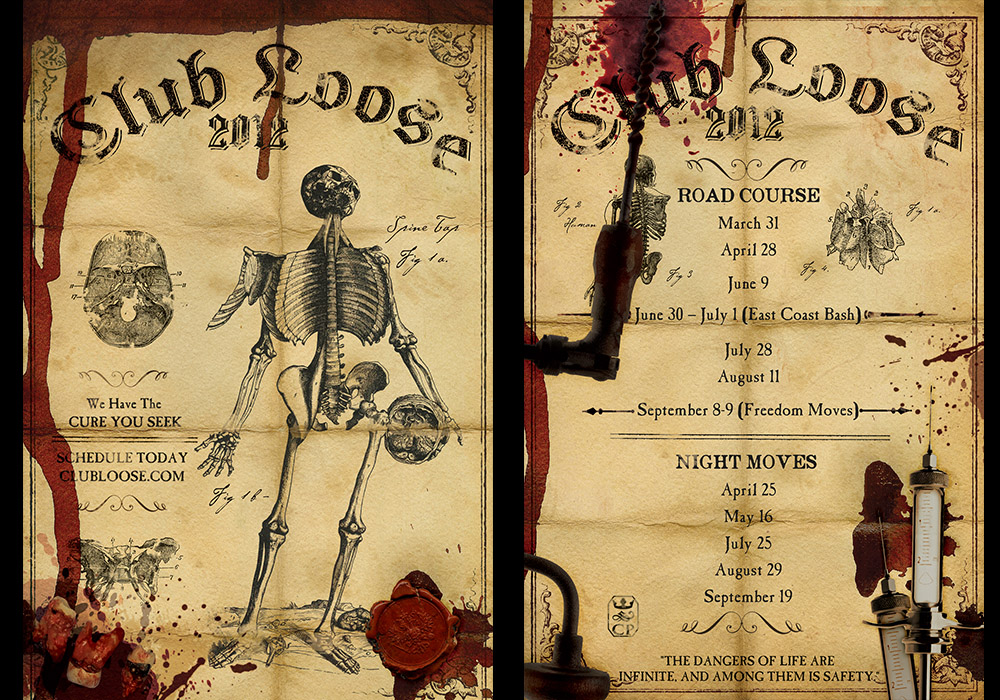 Club Loose
2012
Spine Tap
Fig 1a.
We Have The
CURE YOU SEEK
SCHEDULE TODAY
CLUBLOOSE.COM
Fig 1b-
Club Loose
2012
ROAD COURSE
Fig 2
Human
Fig 3
Fig 1a.
Fig 4.
March 31
April 28
June 9
June 30 – July 1 (East Coast Bash)
July 28
August 11
September 8-9 (Freedom Moves)
NIGHT MOVES
April 25
May 16
July 25
August 29
September 19
"THE DANGERS OF LIFE ARE
INFINITE, AND AMONG THEM IS SAFETY."